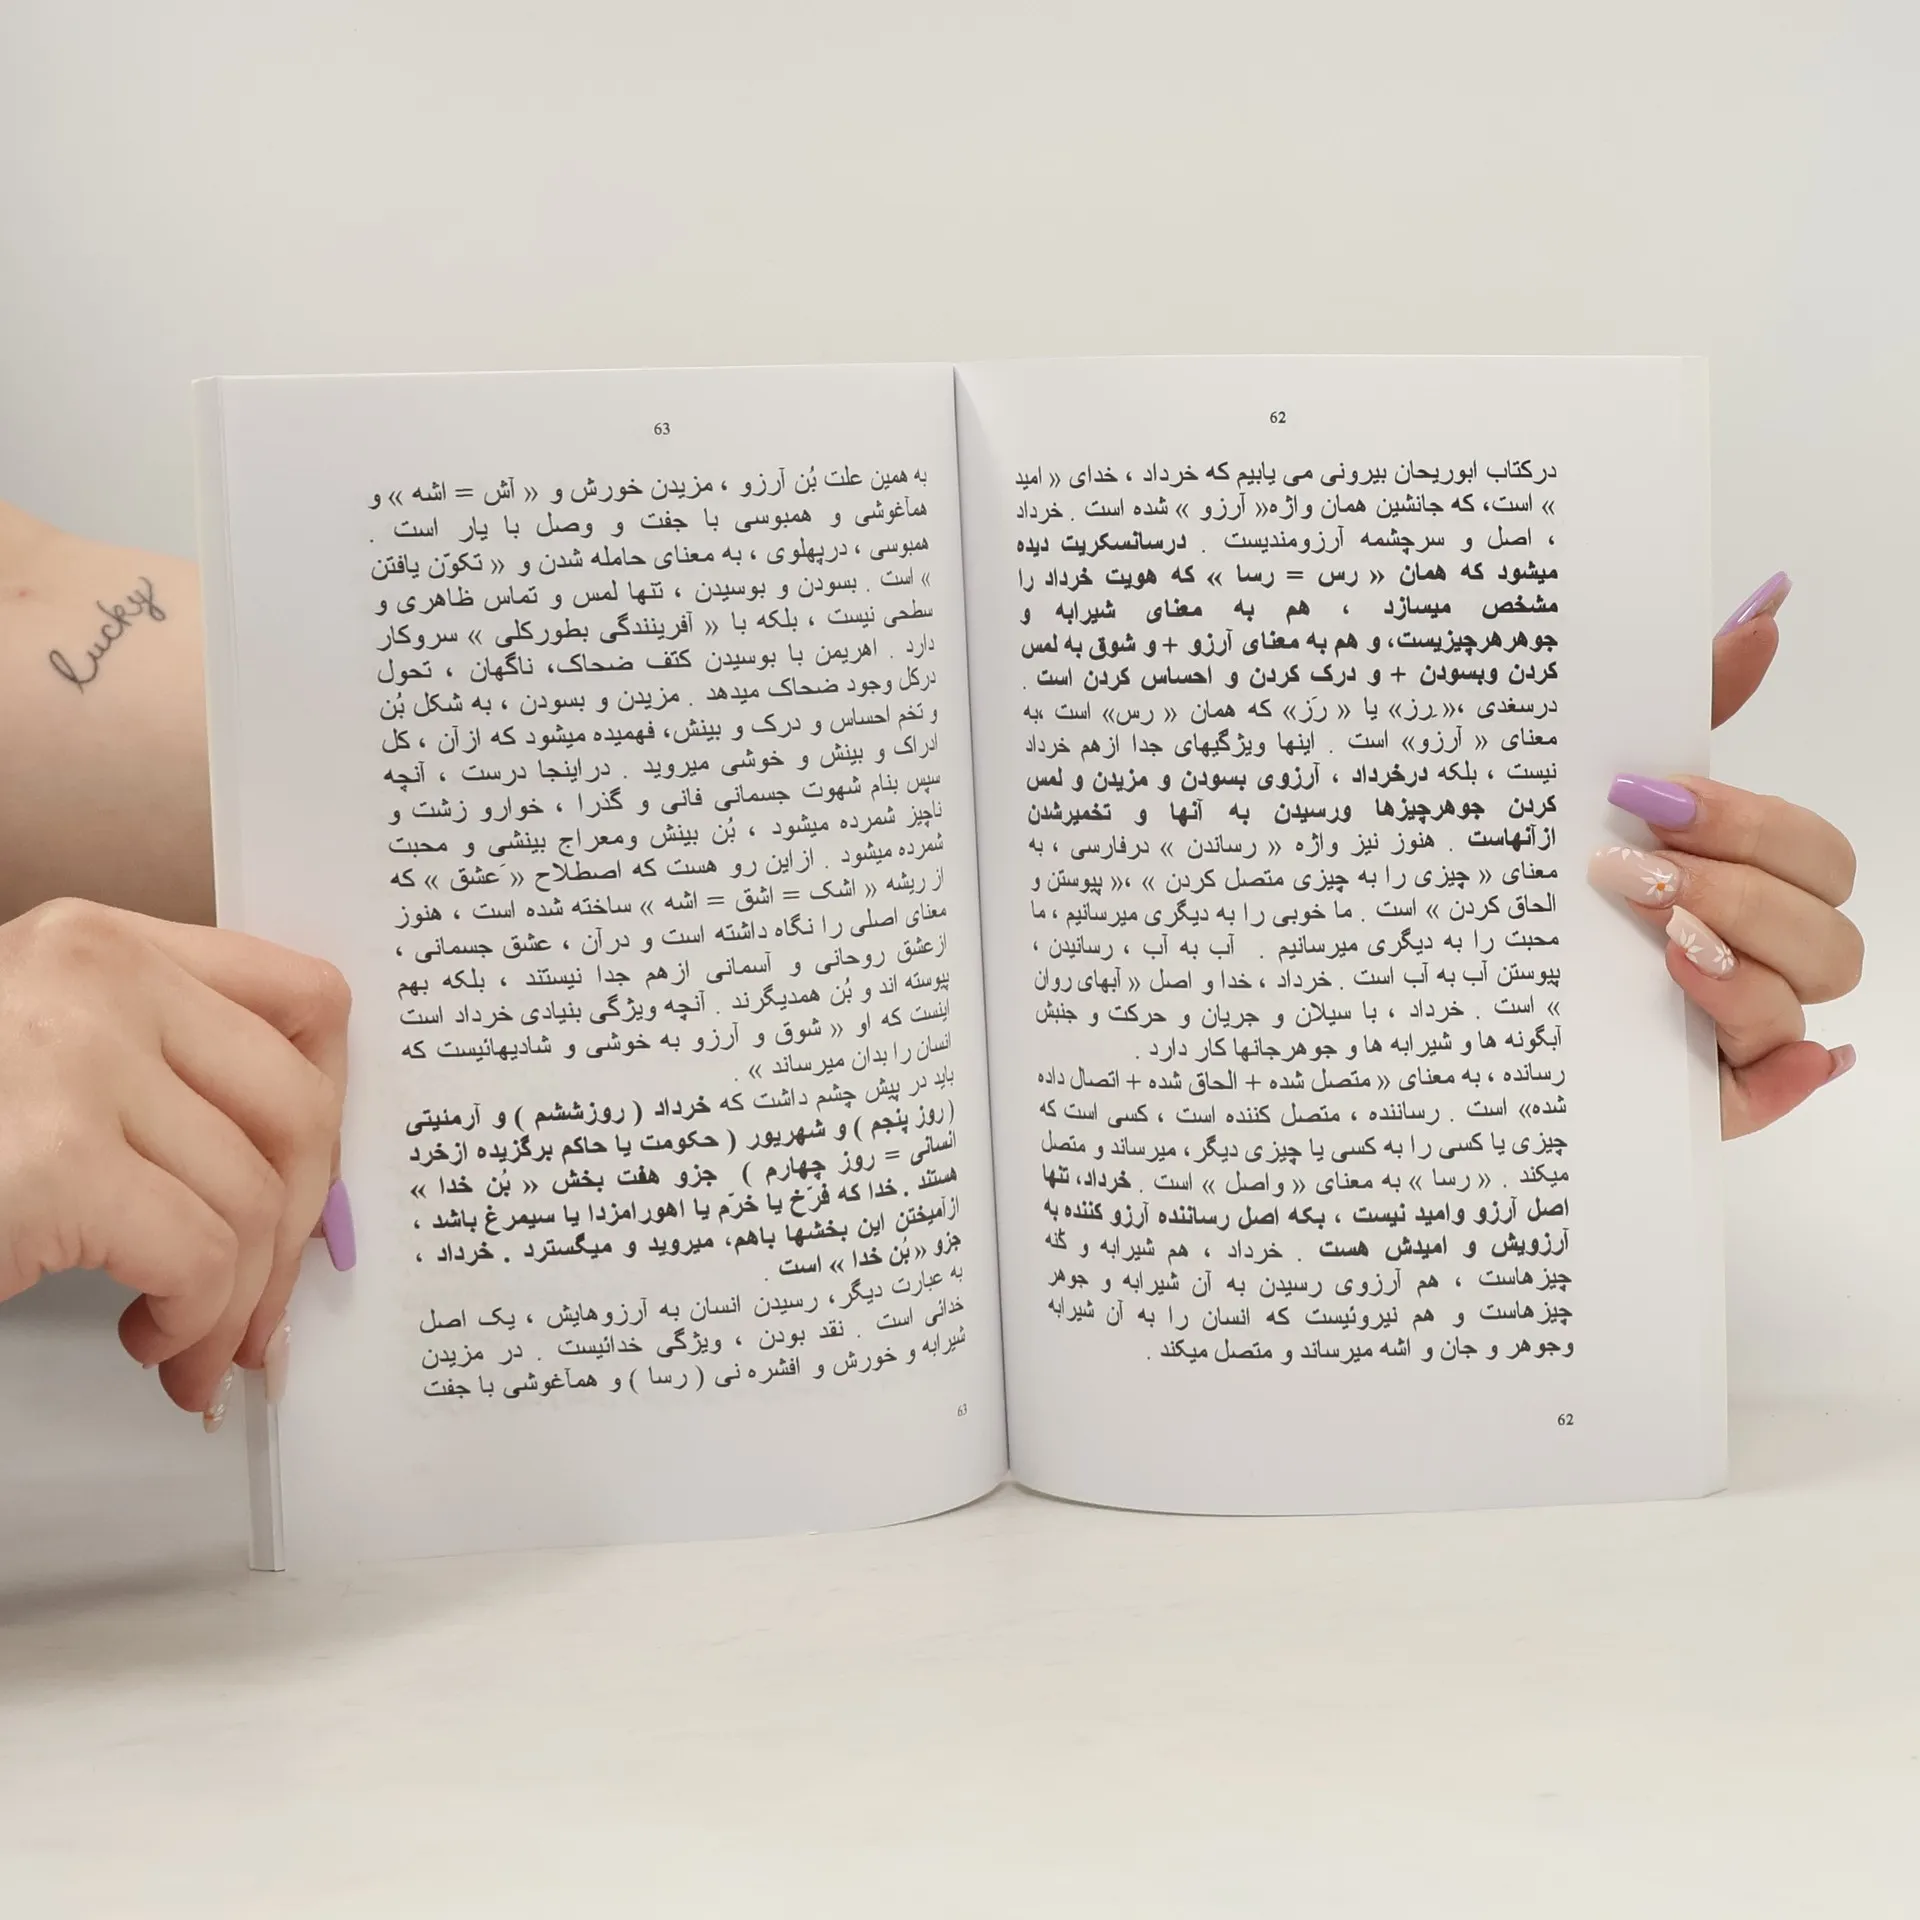 62
درکتاب ابوریحان بیرونی می یابیم که خرداد ، خدای « امید
» است، که جانشین همان واژه« آرزو » شده است . خرداد
، اصل و سرچشمه آرزومندیست . درسانسکریت دیده
میشود که همان « رس = رسا » که هویت خرداد را
مشخص میسازد ، هم به معنای شیرابه و
جوهرهرچیزیست، و هم به معنای آرزو + و شوق به لمس
کردن وبسودن + و درک کردن و احساس کردن است .
درسغدی ،« رِز» یا « رَز» که همان « رس» است ،به
معنای « آرزو» است . اینها ویژگیهای جدا ازهم خرداد
نیست ، بلکه درخرداد ، آرزوی بسودن و مزیدن و لمس
کردن جوهرچیزها ورسیدن به آنها و تخمیرشدن
ازآنهاست . هنوز نیز واژه « رساندن » درفارسی ، به
معنای « چیزی را به چیزی متصل کردن » ،« پیوستن و
الحاق کردن » است . ما خوبی را به دیگری میرسانیم ، ما
محبت را به دیگری میرسانیم . آب به آب ، رسانیدن ،
پیوستن آب به آب است . خرداد ، خدا و اصل « آبهای روان
» است . خرداد ، با سیلان و جریان و حرکت و جنبش
آبگونه ها و شیرابه ها و جوهرجانها کار دارد .
رسانده ، به معنای « متصل شده + الحاق شده + اتصال داده
شده» است . رساننده ، متصل کننده است ، کسی است که
چیزی یا کسی را به کسی یا چیزی دیگر، میرساند و متصل
میکند . « رسا » به معنای « واصل » است . خرداد، تنها
اصل آرزو وامید نیست ، بکه اصل رساننده آرزو کننده به
آرزویش و امیدش هست . خرداد ، هم شیرابه و کُنه
چیزهاست ، هم آرزوی رسیدن به آن شیرابه و جوهر
چیزهاست و هم نیروئیست که انسان را به آن شیرابه
وجوهر و جان و اشه میرساند و متصل میکند .
62
63
به همین علت بُن آرزو ، مزیدن خورش و « آش = اشه » و
همآغوشی و همبوسی با جفت و وصل با یار است .
همبوسی ، درپهلوی ، به معنای حامله شدن و « تکوّن یافتن
» است . بسودن و بوسیدن ، تنها لمس و تماس ظاهری و
سطحی نیست ، بلکه با « آفرینندگی بطورکلی » سروکار
دارد . اهریمن با بوسیدن کتف ضحاک، ناگهان ، تحول
درکل وجود ضحاک میدهد . مزیدن و بسودن ، به شکل بُن
و تخم احساس و درک و بینش، فهمیده میشود که ازآن ، کل
ادراک و بینش و خوشی میروید . دراینجا درست ، آنچه
سپس بنام شهوت جسمانی فانی و گذرا ، خوارو زشت و
ناچیز شمرده میشود ، بُن بینش ومعراج بینشی و محبت
شمرده میشود . ازاین رو هست که اصطلاح « عَشق » که
از ریشه « اشک = اشق = اشه » ساخته شده است ، هنوز
معنای اصلی را نگاه داشته است و درآن ، عشق جسمانی ،
ازعشق روحانی و آسمانی ازهم جدا نیستند ، بلکه بهم
پیوسته اند و بُن همدیگرند . آنچه ویژگی بنیادی خرداد است
اینست که او « شوق و آرزو به خوشی و شادیهائیست که
انسان را بدان میرساند » .
باید در پیش چشم داشت که خرداد ( روزششم ) و آرمئیتی
(روز پنجم ) و شهریور ( حکومت یا حاکم برگزیده ازخرد
انسانی = روز چهارم ) جزو هفت بخش « بُن خدا »
هستند . خدا که فرّخ یا خرّم یا اهورامزدا یا سیمرغ باشد ،
ازآمیختن این بخشها باهم، میروید و میگسترد . خرداد ،
جزو « بُن خدا » است .
به عبارت دیگر، رسیدن انسان به آرزوهایش ، یک اصل
خدائی است . نقد بودن ، ویژگی خدائیست . در مزیدن
شیرابه و خورش و افشره نی ( رسا ) و همآغوشی با جفت
63
lucky